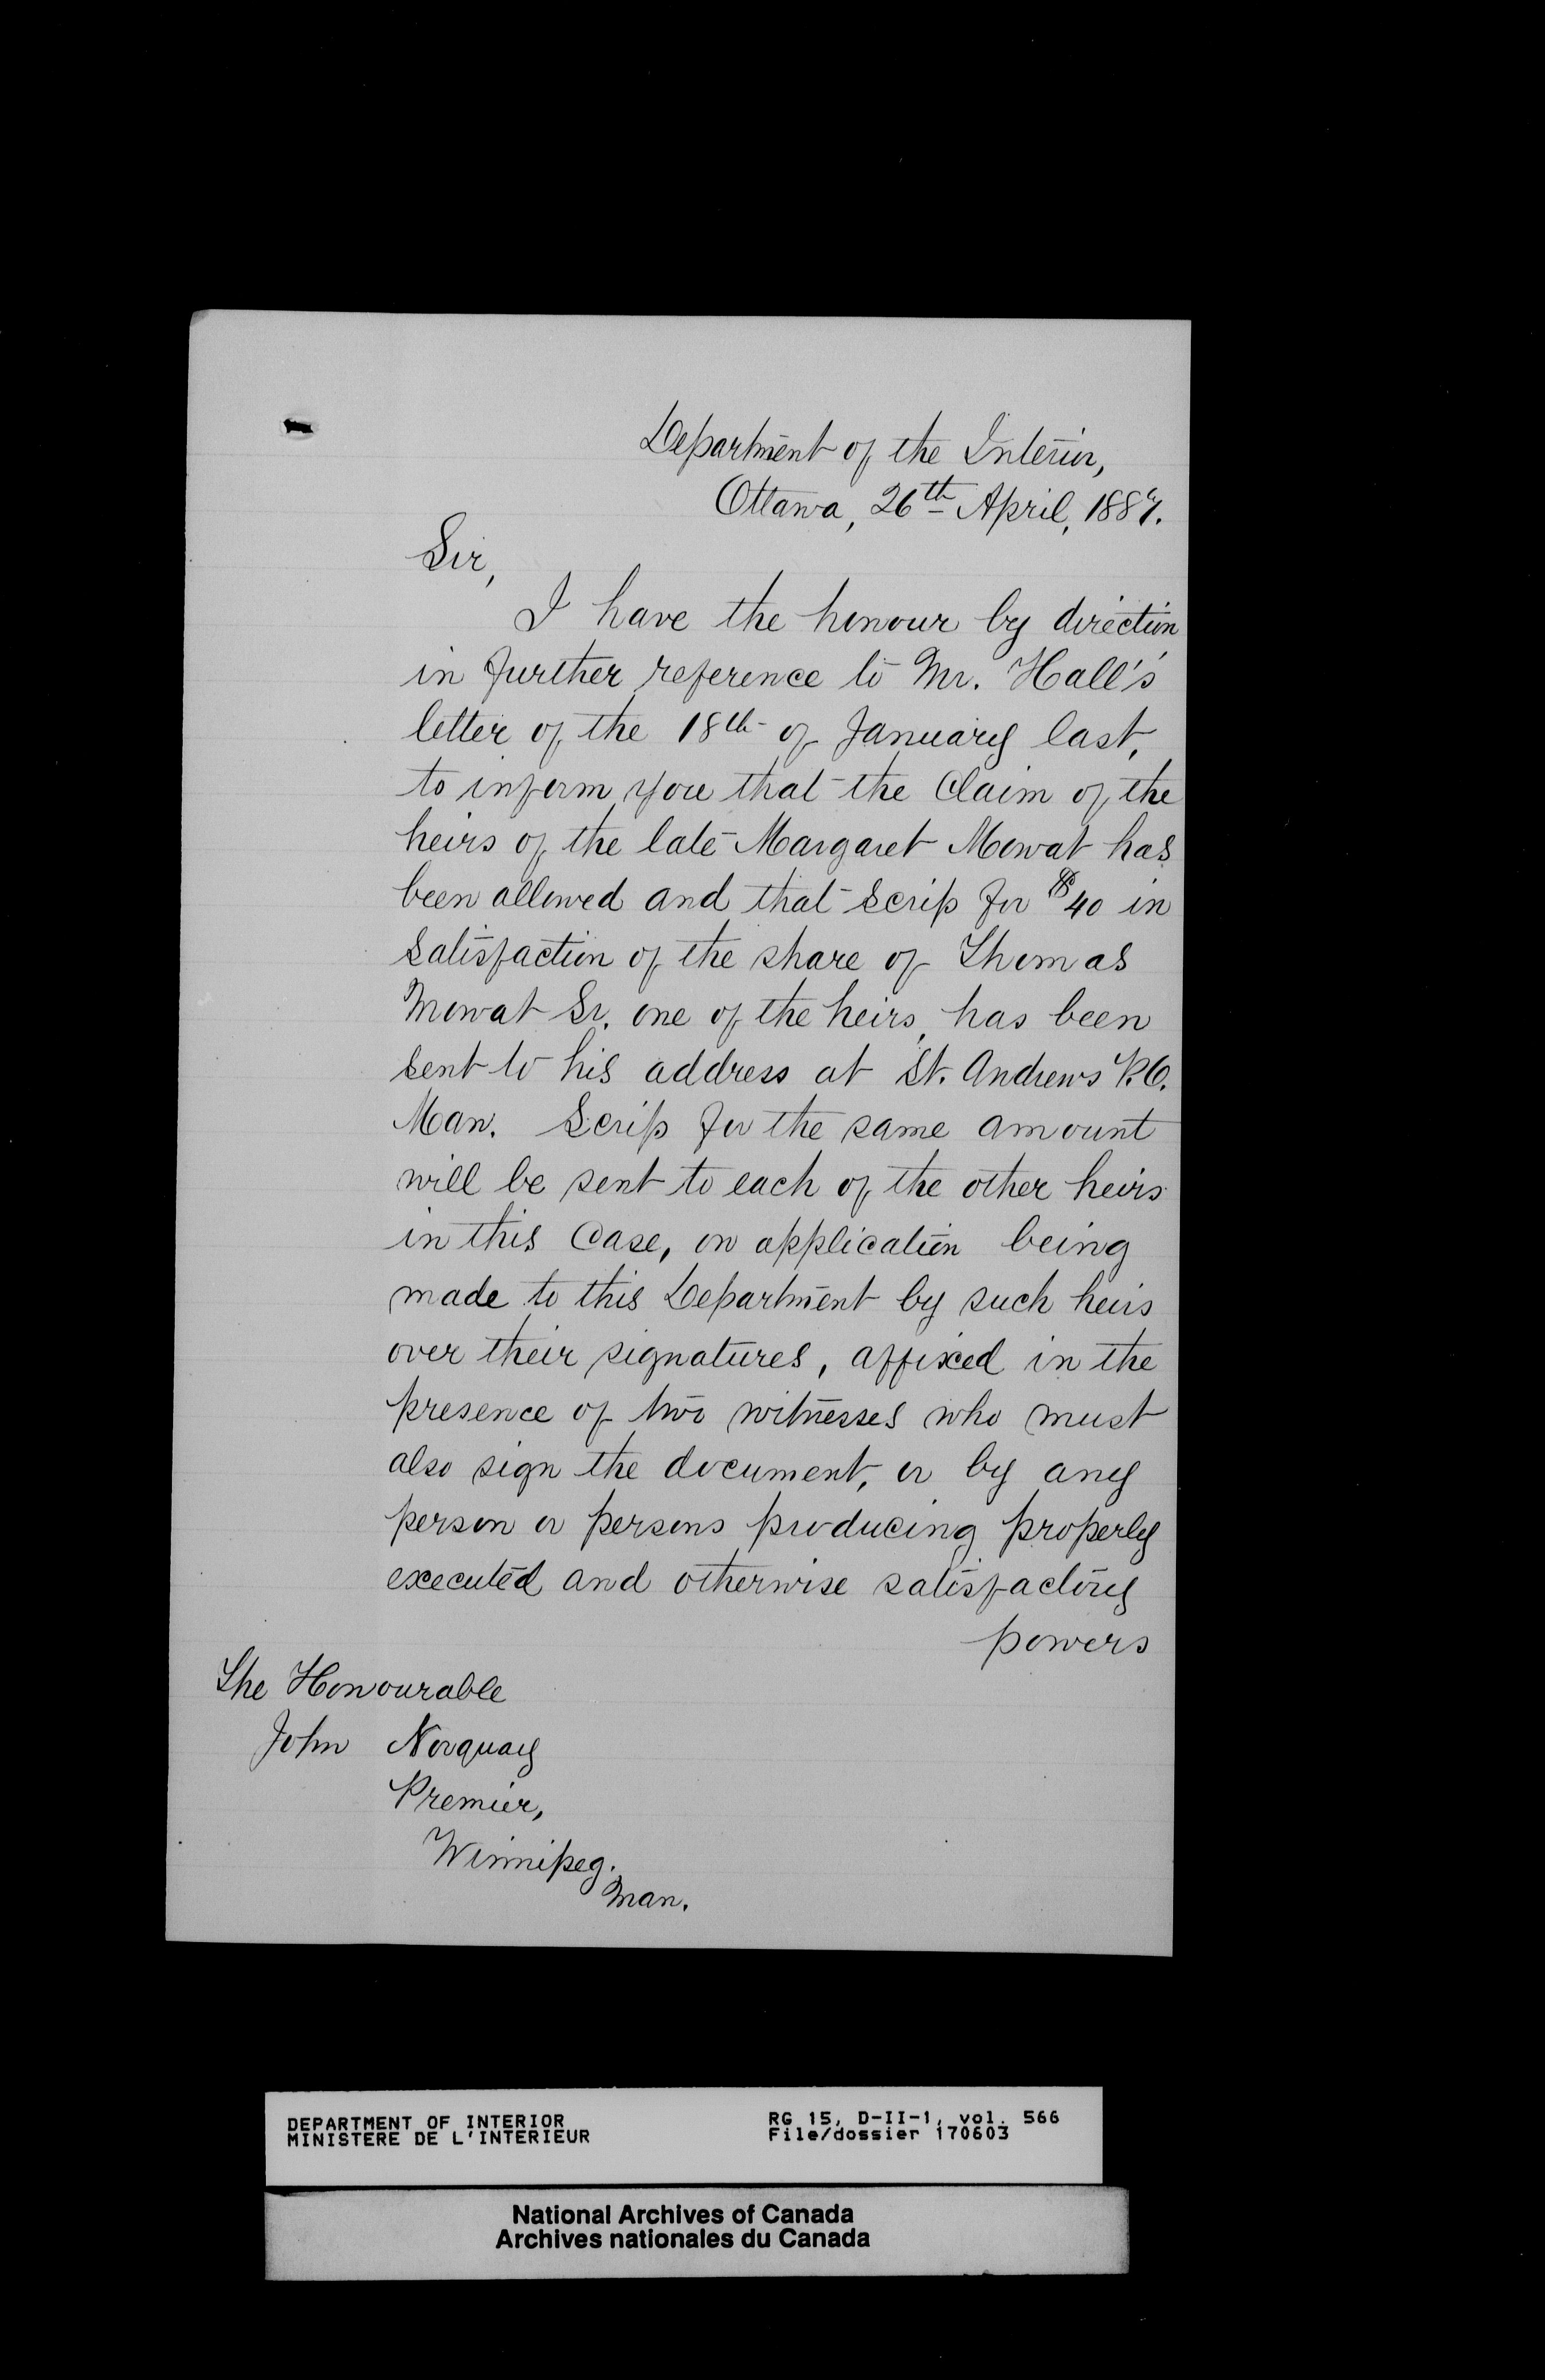 Department of the Interior,
Ottawa, 26th April, 1887.
Sir,
I have the honour by direction
in further reference to Mr. Hall's
letter of the 18th of January last,
to inform you that the Claim of the
heirs of the late Margaret Mowat has
been allowed and that Scrip for $40 in
satisfaction of the share of Thomas
Mowat Sr. one of the heirs, has been
sent to his address at St. Andrews P.O.
Man. Scrip for the same amount
will be sent to each of the other heirs
in this Case, on application being
made to this Department by such heirs
over their signatures, affixed in the
presence of two witnesses who must
also sign the document, or by any
person or persons producing properly
executed and otherwise satisfactory
powers
The Honourable
John Norquay
Premier,
Winnipeg.
Man.
DEPARTMENT OF INTERIOR
MINISTERE DE L'INTERIEUR
RG 15, D-II-1, vol. 566
File/dossier 170603
National Archives of Canada
Archives nationales du Canada